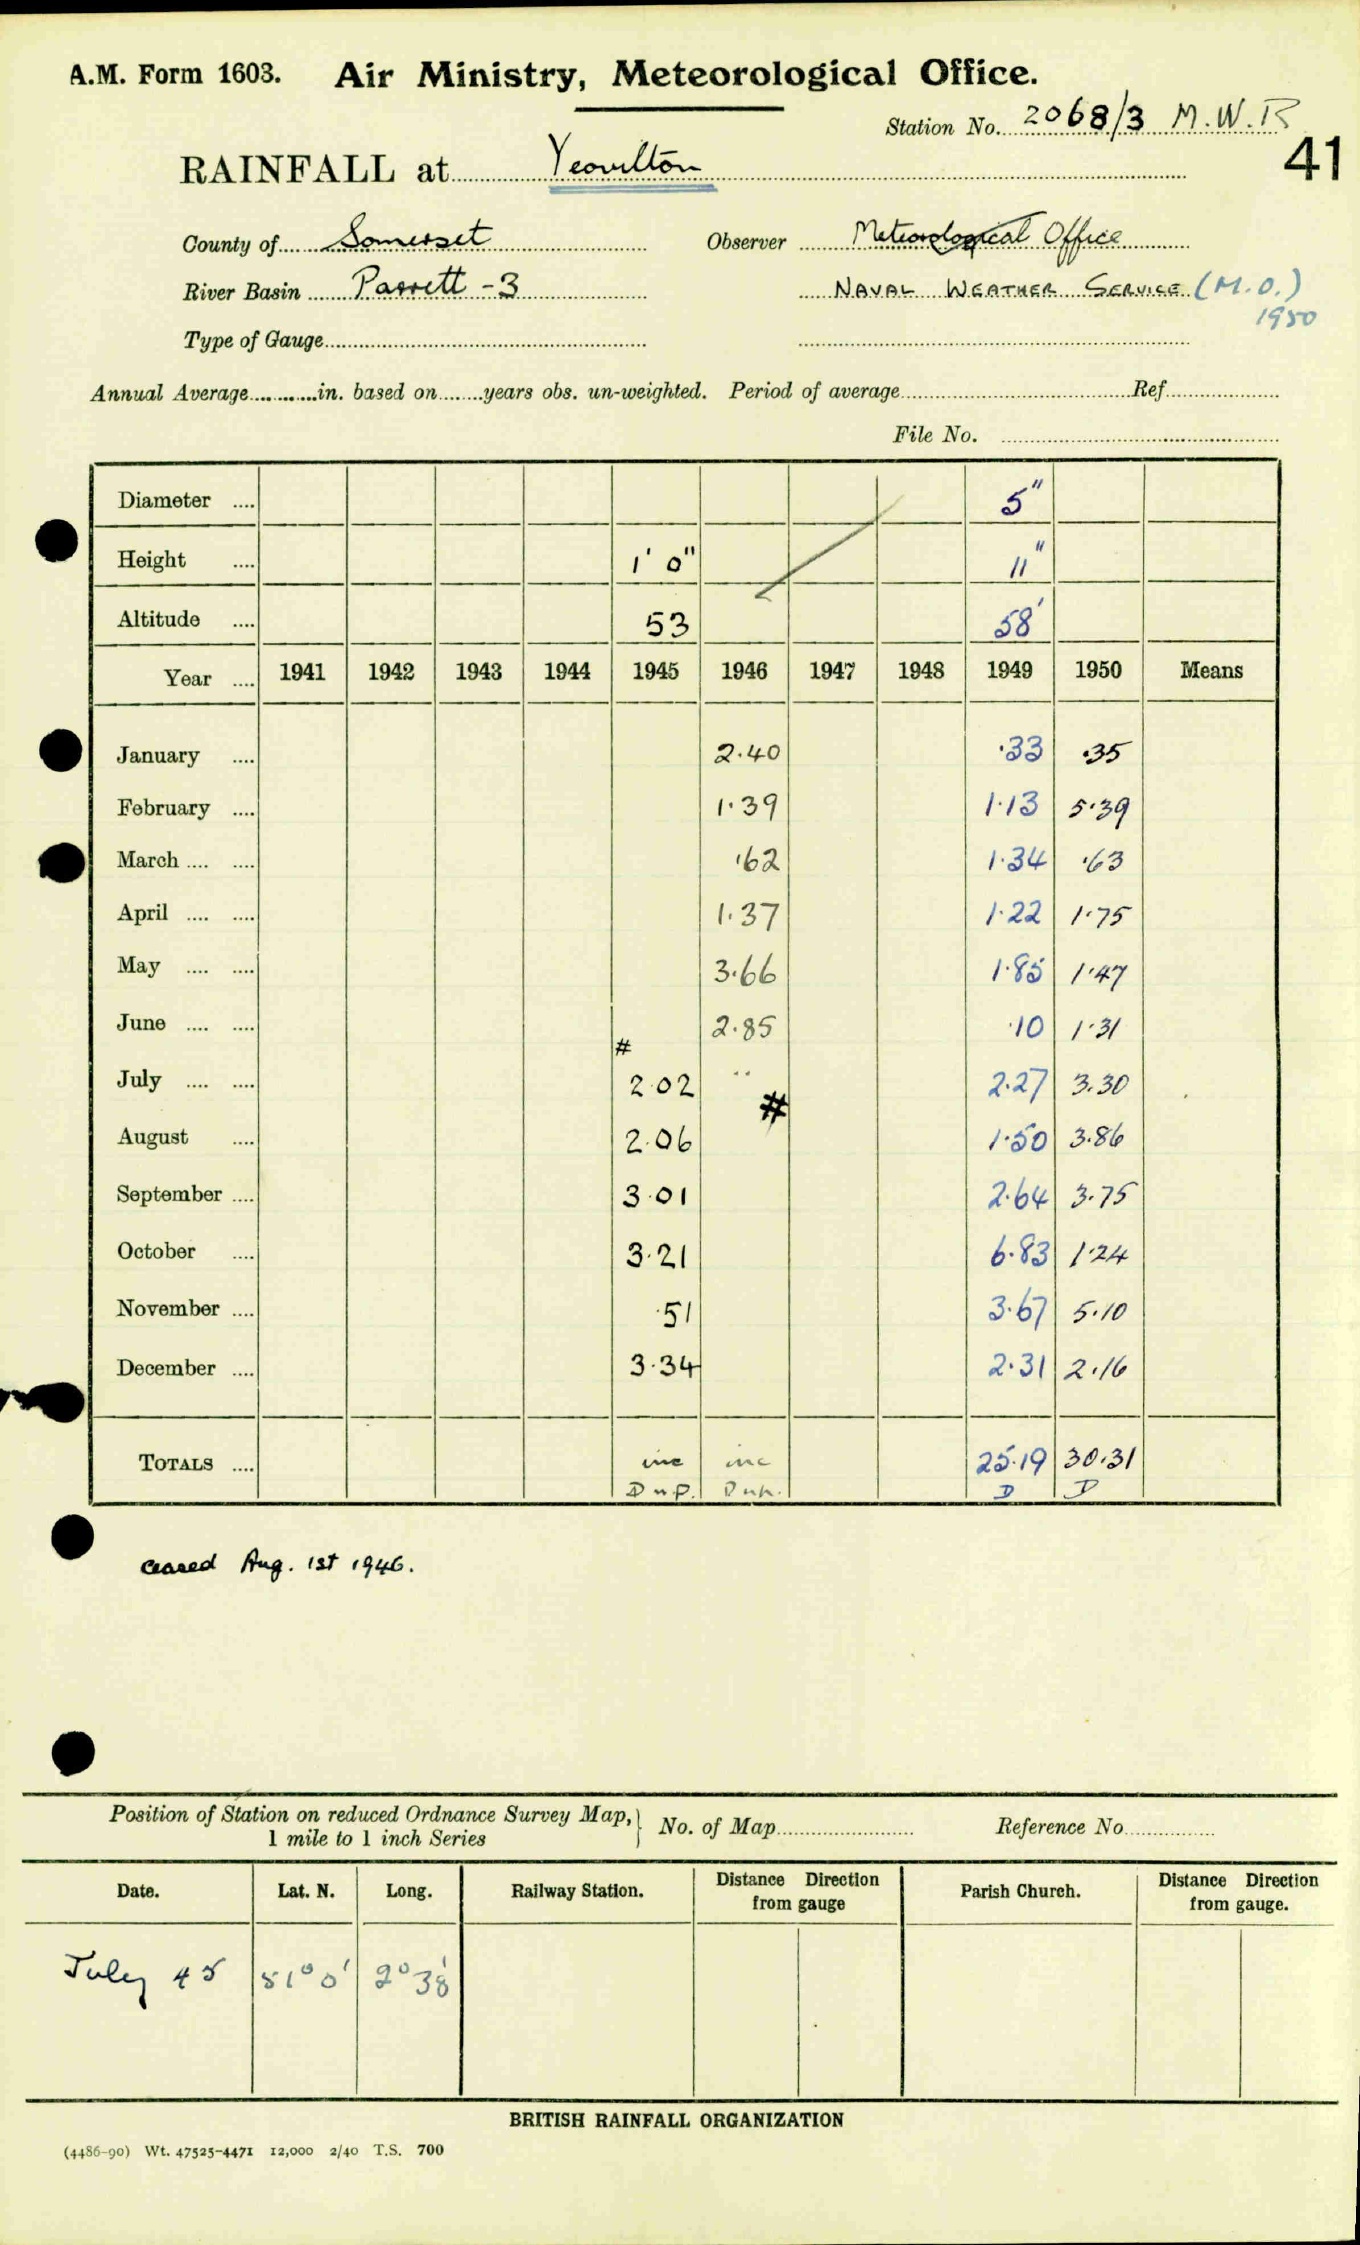 A.M. Form 1603. Air Ministry, Meteorological Office.
Station No. 2068/3 M.W.R
41
RAINFALL at Yeovilton
County of Somerset Observer Meteorological Office
River Basin Parrett - 3 NAVAL WEATHER SERVICE (M.O.)
1950
Type of Gauge
Annual Average in. based on years obs. un-weighted. Period of average Ref.
File No.
Diameter 5"
Height 1' 0" 11"
Altitude 53 58'
Year 1941 1942 1943 1944 1945 1946 1947 1948 1949 1950 Means
January 2.40 .33 .35
February 1.39 1.13 5.39
March .62 1.34 .63
April 1.37 1.22 1.75
May 3.66 1.85 1.47
June 2.85 .10 1.31
#
July 2.02 .. 2.27 3.30
#
August 2.06 1.50 3.86
September 3.01 2.64 3.75
October 3.21 6.83 1.24
November .51 3.67 5.10
December 3.34 2.31 2.16
TOTALS inc inc 25.19 30.31
D D
ceased Aug. 1st 1946.
Position of Station on reduced Ordnance Survey Map,
1 mile to 1 inch Series
No. of Map Reference No.
Date. Lat. N. Long. Railway Station. Distance Direction from gauge Parish Church. Distance Direction from gauge.
July 45 51° 0' 2° 38'
BRITISH RAINFALL ORGANIZATION
(4486-90) Wt. 47525-4471 12,000 2/40 T.S. 700